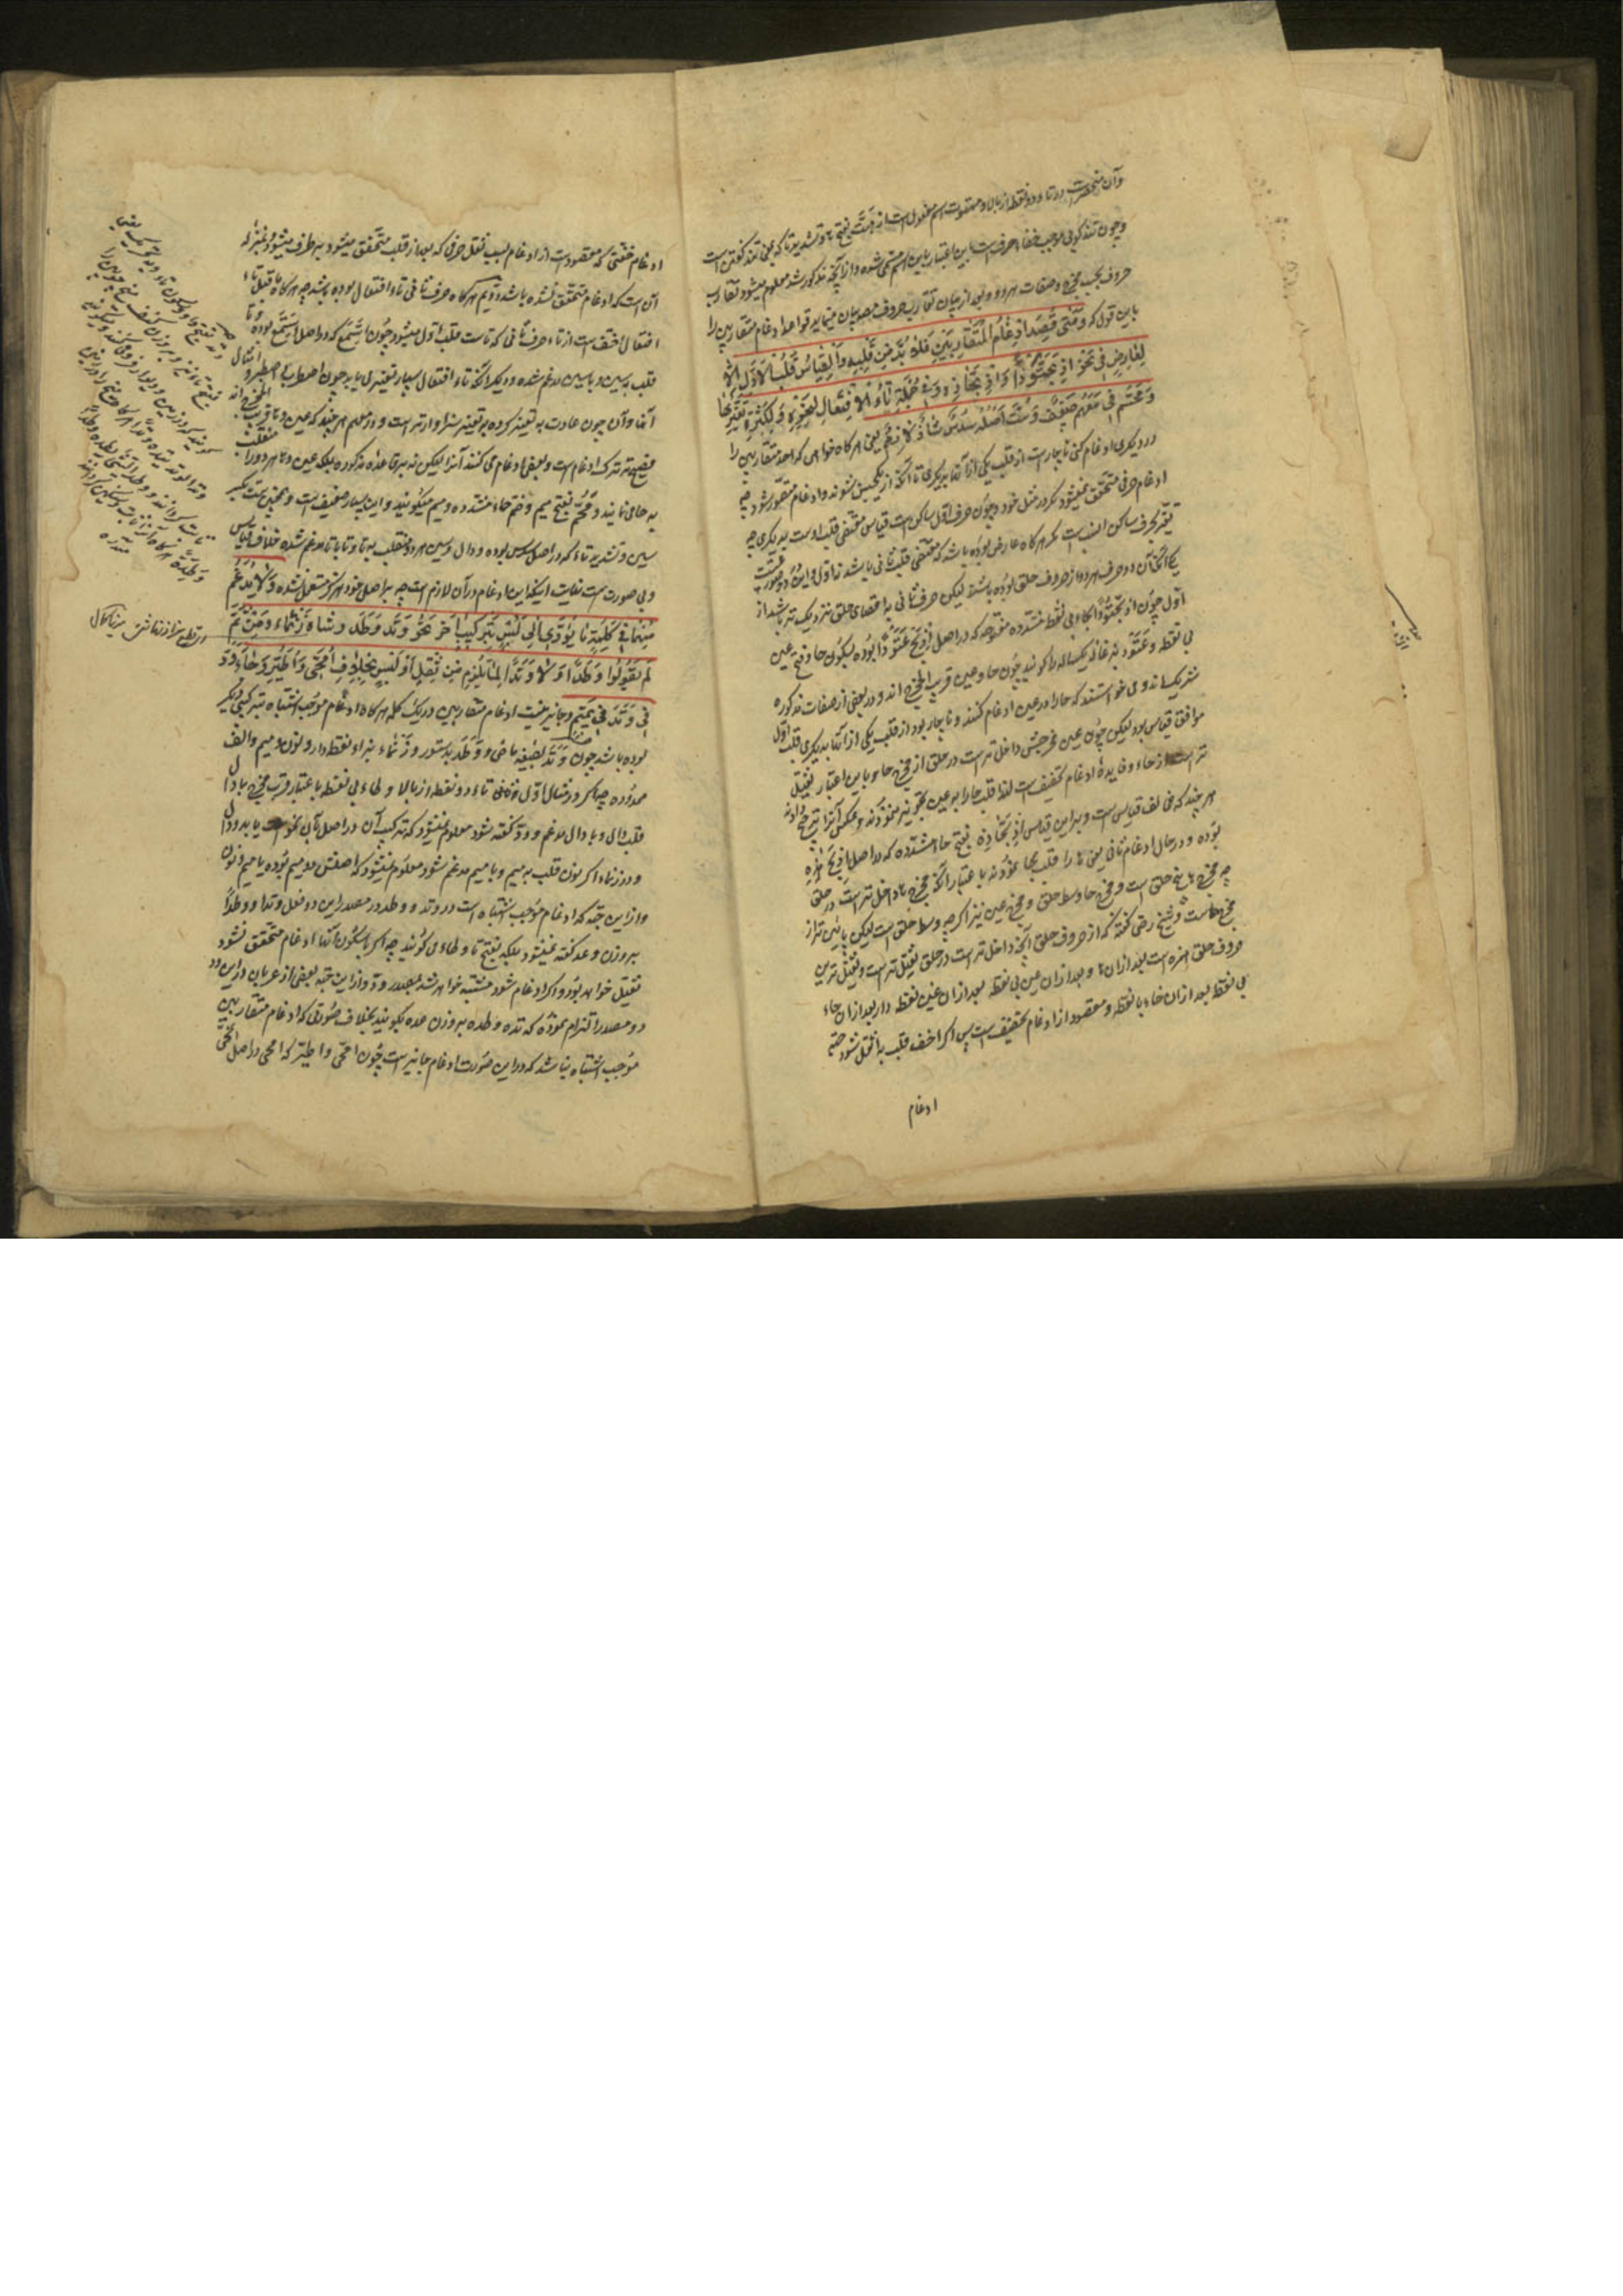 وآن منحصرست در تاء دو نقطه از بالا و مهتوت اسم مفعول است از هت بفتح ها و تشدید تا که بمعنی تند گفتن است
وچون تند گوئی موجب خفاء حرف است باین اعتبار باین اسم مسمی شده و از آنچه مذکور شد معلوم میشود تقارب
حروف بحسب مخرج و صفات هر دو و بعد از بیان تقارب حروف مصر بیان مینماید قواعد ادغام متقاربین را
باین قول که وَمَتی قُصِدَ اِدغامُ المُتَقارِبَینِ فَلا بُدَّ مِن قَلبِهِ وَالقِیاسُ قَلبُ الاَوَّلِ اِلّا
لِعارِضٍ فی نَحوِ اِذبَحَّتُودًا وَاذبَحّاذِهِ وَفی جُملَةِ تاءِ الاِفتِعالِ لِنَحوِهِ وَلِکَثرَةِ تَغَیُّرِها
وَمَحُّم فی مَعَهُم ضَعیفٌ وَسِتٌّ اَصلُهُ سِدسٌ شاذٌّ لازِمٌ یعنی هر کاه خواهی که احد متقاربین را
در دیکری ادغام کنی ناچارست از قلب یکی از آنها بدیکری تا آنکه از یکجنس شوند و ادغام متصور شود چه
ادغام حرفی متحقق نمیشود مکر در مثل خود و چون حرف اول ساکن است قیاس مقتضی قلب اوست بدیکری چه
تغیر حرف ساکن انسب است مکر هر کاه عارضی بوده باشد که مقتضی قلب ثانی باشد نه اول و این در دو صورتست
یکی آنکه آن دو حرف هر دو از حروف حلق بوده باشند لیکن حرف ثانی به اقصای حلق نزدیک تر باشد از
اول چون اذبحتودا بحاء بی نقطه مشدده مفتوحه که در اصل اِذبَح عَتُودًا بوده بسکون حا و فتح عین
بی نقطه و عتود بزغاله یکساله را کویند چون حا و عین قریب المخرج اند و در بعضی از صفات مذکوره
شریک اند و می خواستند که حا را در عین ادغام کنند و ناچار بود از قلب یکی از آنها بدیکری قلب اول
موافق قیاس بود لیکن چون عین مخرجش داخل تر است در حلق از مخرج حا و باین اعتبار ثقیل
تر است از حاء و فایدهٔ ادغام تخفیف است لهذا قلب حا را بعین تجویز ننمودند و عکس آنرا ترجیح دادند
هر چند که مخالف قیاس است و برین قیاس اذبحّاذه بفتح حاء مشدده که در اصل اِذبَح هذِهِ
بوده و در حال ادغام ثانی یعنی ها را قلب بحا نمودند باعتبار آنکه مخرج ها داخل تر است در حلق
چه مخرج ها بیخ حلق است و مخرج حا وسط حلق و مخرج عین نیز اکرچه وسط حلق است لیکن پائین تر از
مخرج حاست و شیخ رضی گفته که از حروف حلق آنچه داخل تر است در حلق ثقیل تر است و ثقیل ترین
حروف حلق همزه است بعد از آن ها و بعد از ان عین بی نقطه بعد از ان غین نقطه دار بعد از ان حاء
بی نقطه بعد از ان خاء با نقطه و مقصود از ادغام تخفیف است پس اکر اخف قلب باثقل شود خفتی
ادغام
ادغام خفتی که مقصودست از ادغام بسبب ثقل حرفی که بعد از قلب متحقق میشود بر طرف میشود و بمنزله
آن است که ادغام متحقق نشده باشد دویم هر کاه حرف ثانی تاء افتعال بوده باشد چه هر کاه ما قبل تاء
افتعال اخف است از تاء حرف ثانی که تاست قلب باول میشود چون اِسَّمَعَ که در اصل اِستَمَعَ بوده و تا
قلب بسین و با سین مدغم شده و دیکر آنکه تاء افتعال بسیار تغیر می یابد چون اصطرب اصطبر و امثال
آنها و آن چون عادت به تغیر کرده به تغییر سزاوارتر است و در معهم هر چند که عین و ها قریب المخرج اند
فصیح تر ترک ادغام است و بعضی ادغام می کنند آنرا لیکن نه بر قاعده مذکوره بلکه عین و ها هر دو را منقلب
به حا می نمایند و مَحُّم بفتح میم و ضم حاء مشدده و میم میکویند و این بسیار ضعیف است و همچنین ست بکسر
سین و تشدید تاء که در اصل سدس بوده و دال و سین هر دو منقلب به تا و تا با تا مدغم شده خلاف قیاس
وبی صورت ست نهایت اینکه این ادغام در آن لازم است چه بر اصل خود هرکز مستعمل نشده وَلا یُدغَمُ
مِنهُما فی کَلِمَةٍ ما یُؤَدّی اِلی لَبسٍ بِتَرکیبٍ آخَرَ نَحوُ وَتَدَ وَطَدَ وشاة زَنماء وَمِن ثَمَّ
لَم یَقُولُوا وَطدًا وَلا وَتدًا لِما یَلزَمُ مِن ثِقَلٍ اَو لَبسٍ بِخِلافِ اِمَّحی وَاِطَّیَّرَ وَجاءَ وَدّ
فی وَتَد فی تَمیم وجایز نیست ادغام متقاربین در یک کلمه هر کاه ادغام موجب اشتباه بترکیبی دیکر
بوده باشد چون وَتَدَ بصیغه ماضی و وَطَدَ بدستور و زَنماء بزاء نقطه دار و نون و میم والف
ممدوده چه اکر در مثال اول و ثانی تاء دو نقطه از بالا و طاء بی نقطه باعتبار قرب مخرج با دال
قلب بدال و با دال مدغم و ودّ کفته شود معلوم نمیشود که ترکیب آن در اصل بآن نحوست یا بدو دال
و در زنماء اکر نون قلب به میم و با میم مدغم شود معلوم نمیشود که اصلش دو میم بوده یا میم و نون
و از این جهة که ادغام موجب اشتباه است در وتد و وطد در مصدر این دو فعل وتدا و وطدًا
بر وزن وعد کفته نمیشود بلکه بفتح تا و طاء می کویند چه اکر باسکون آنها ادغام متحقق نشود
ثقیل خواهد بود و اکر ادغام شود مشتبه خواهد شد بمصدر ودّ و از این جهة بعضی از عربان در این دو
دو مصدر التزام نموده که تده و طده بر وزن عده بکویند بخلاف صورتی که ادغام متقاربین
موجب اشتباه نباشد که در این صورت ادغام جایز است چون امّحی و اطّیّر که امحی در اصل انمحی